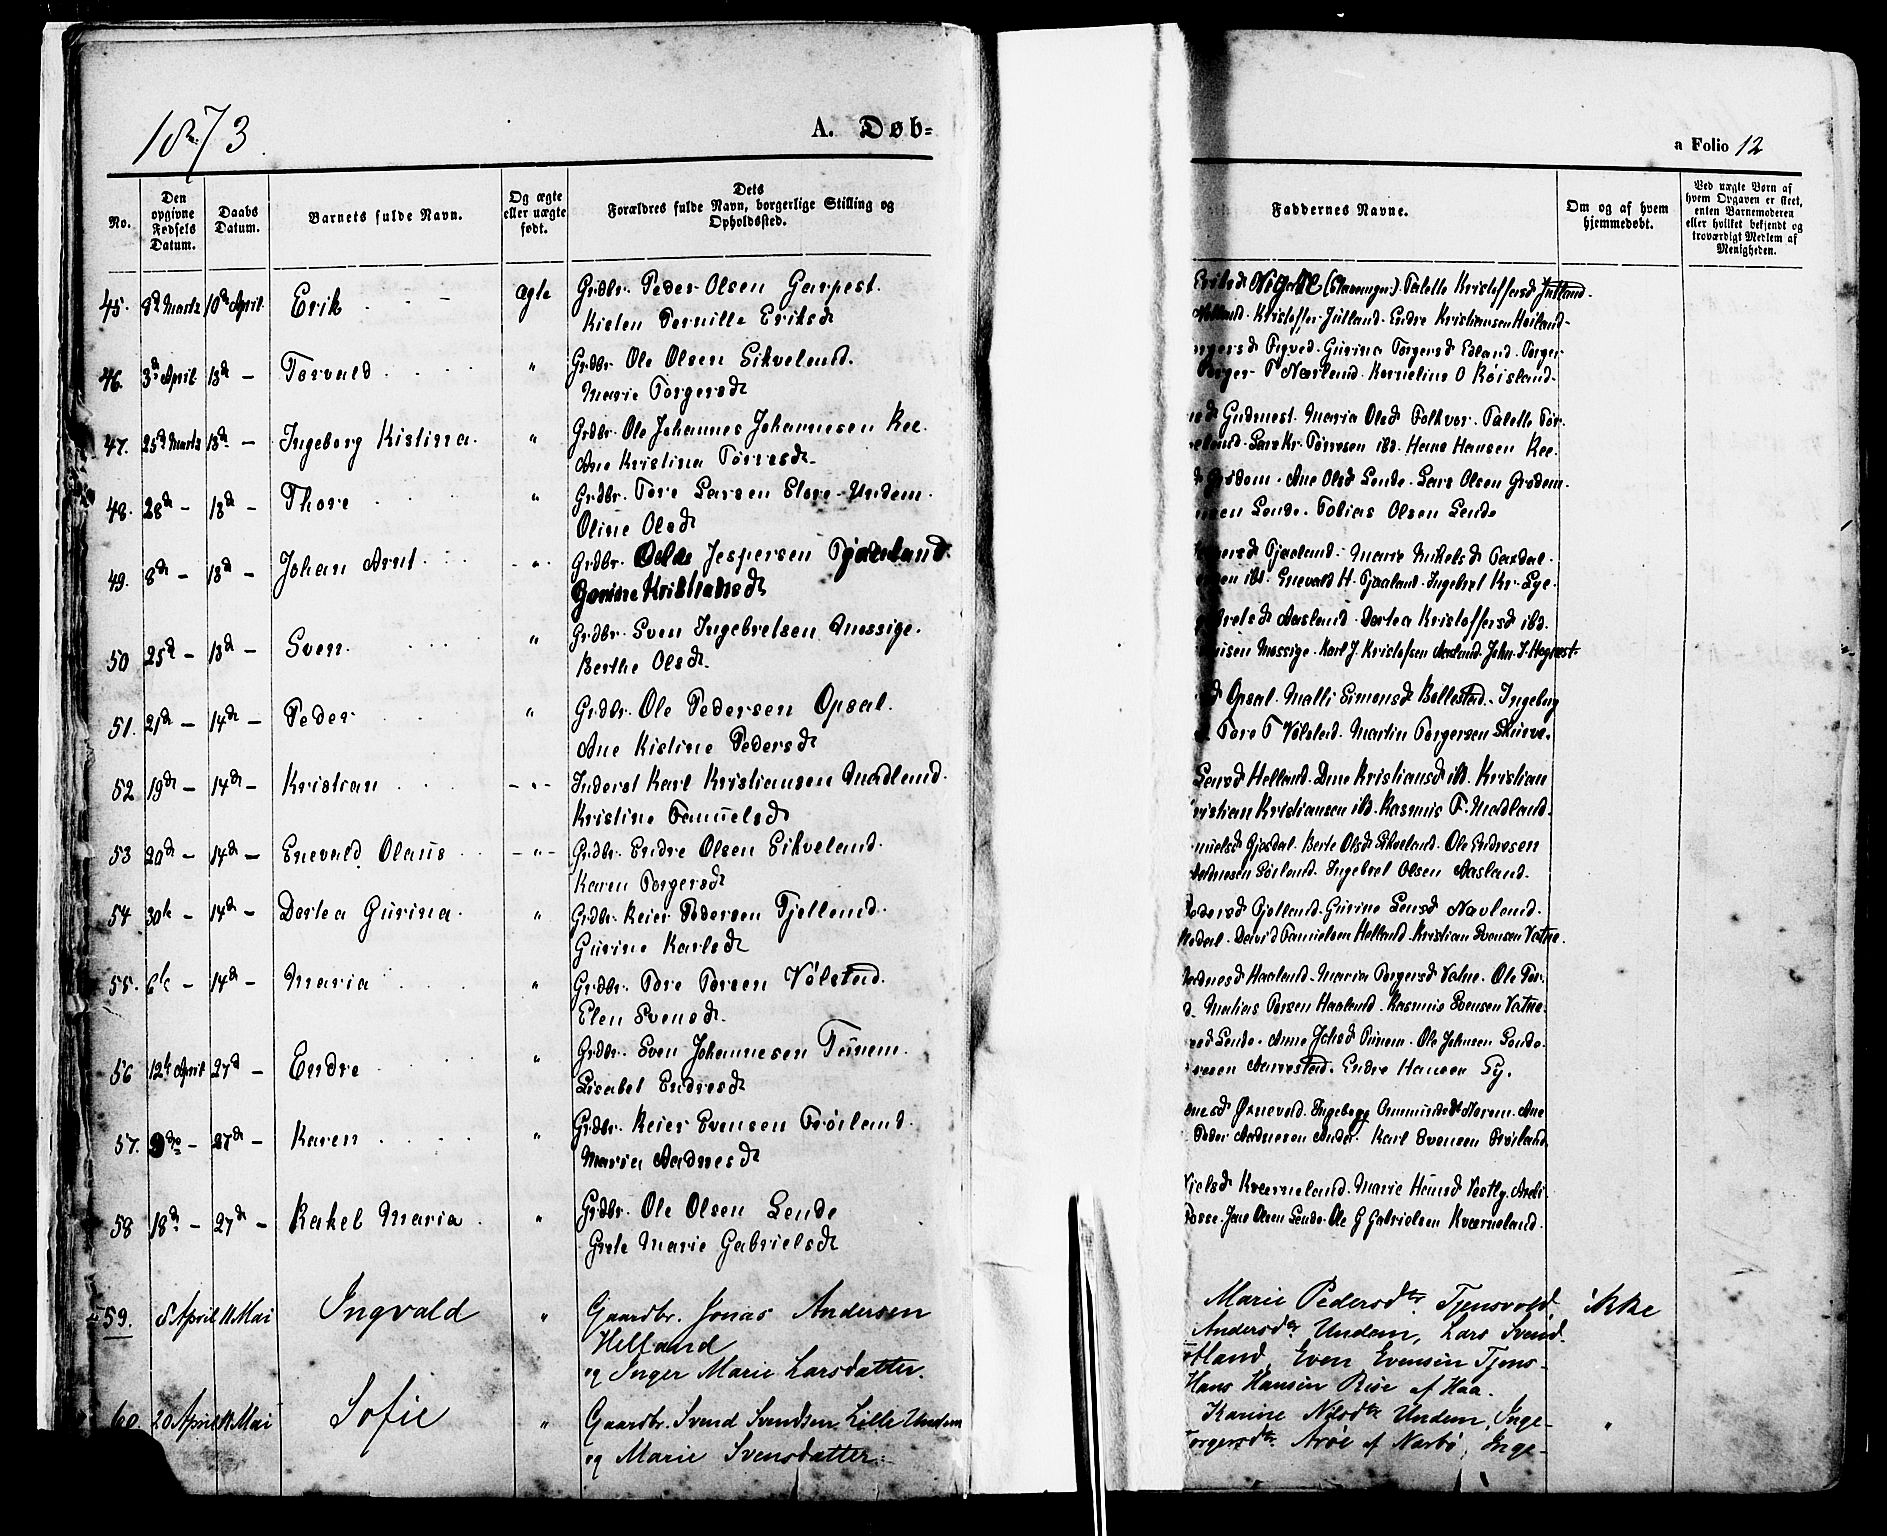 1873
A. Døb-
a Folio 12
No.
Den opgivne Fødsels Datum.
Daabs Datum.
Barnets fulde Navn.
Og ægte eller uægte født.
Dets Forældres fulde Navn, borgerlige Stilling og Opholdssted.
Faddernes Navne.
Om og af hvem hjemmedøbt.
Ved uægte Børn af hvem Opgaven er skeet, enten Barnemoderen eller hvilket bekjendt og troværdigt Medlem af Menigheden.
45. 8de Marts 10de April Erik ægte Grdbr. Peder Olsen Garpest.
Kisten Pernille Eriksdt
Eriksdt (Stavanger) Talette Kristoffersdt Jutland.
Kristoffer Jutland. Endre Kristiansen Høiland-
46. 3de April 13de – Torvald " Grdbr. Ole Olsen Sikveland.
Marie Torgersdt
Gurina Torgersdt Edland. Torger
T Nærland. Kornelius O Røisland.
47. 25de Marts 13de – Ingeborg Kistina. " Grdbr. Ole Johannes Johannesen Ree
Ane Kristina Tørresdt
Gudmest. Maria Olsdt Folkvor. Talette Tør-
Lars Kr. Tørresen ibd. Hans Hansen Ree.
48. 28de – 13de – Thore " Grdbr. Tore Larsen Store-Undem.
Oline Olsdt
Grødem. Ane Olsdt Lende. Lars Olsen Grødem.
Lende. Tobias Olsen Lende
49. 8de – 13de – Johan Arnt " Grdbr. Jespersen Tjaaland
Tjaaland. Marie Mikelsdt Taksdal.
ibd. Enevald H. Tjaaland. Ingebret Kr. Lye.
50 25de – 13de – Sven. " Grdbr. Sven Ingebretsen Mossige.
Berthe Olsdt.
Aasland. Dortea Kristoffersdt ibd.
Mossige. Karl J. Kristofsen Aasland. John J. Hognest.
51. 21de – 14de – Peder " Grdbr. Ole Pedersen Opsal.
Ane Kistine Pedersdt
Opsal. Malli Simonsdt Bollestad. Ingeborg
Tore T Vølstad. Martin Torgersen Skurve.
52 19de – 14de – Kristian " Inderst Karl Kristiansen Madland.
Kristine Samuelsdt
Larsdt Helland. Dine Kristiansdt ibd. Kristian
Kristian Kristiansen ibd. Rasmus T. Madland.
53 20de – 14de – Enevald Olaus " Grdbr. Endre Olsen Sikveland.
Karen Torgersdt
Gjesdal. Berte Olsdt Sikveland. Ole Endresen
Sørland. Ingebret Olsen Aasland.
54 30te – 14de – Dortea Gurina. " Grdbr. Reier Pedersen Tjelland.
Gurine Karlsdt
Pedersdt Tjelland. Gurine Larsdt Navland.
David Danielsen Helland. Kristian Svensen Vatne.
55. 6te – 14de – Maria " Grdbr. Tore Torsen Vølstad.
Elen Svensdt.
Haaland. Maria Torgersdt Vatne. Ole Tor-
Matias Torsen Haaland. Rasmus Svensen Vatne.
56 12te April 27de – Endre " Grdbr. Sven Johannesen Tunem.
Lisabet Endresdt
Lende. Anne Johsdt Tunem. Ole Johnsen Lende.
Aarrestad. Endre Hansen Ly.
57. – 27de – Karen " Grdbr. Reier Svensen Frøiland.
Maria Aadnesdt
Ørnevold. Ingeborg Ommundsdt Norem. Ane
Peder Aadnesen Anda. Karl Svensen Frøiland.
58 18de – 27de – Rakel Maria " Grdbr. Ole Olsen Lende
Grete Marie Gabrielsdt
Nielsdt Kværneland. Marie Hansdt Vestly.
Fosse. Jens Olsen Lende. Ole G Gabrielsen Kværneland.
59. 8 April 11 Mai Ingvald " Gaardbr. Jonas Andersen
Helland
og Inger Marie Larsdatter.
Marie Pedersdtr Tjensvold ikke
Andersdtr Undem, Lars Svend-
Even Evensen Tjens-
Hans Hansen Rise af Haa.
60. 20 April 11 Mai Sofie " Gaardbr. Svend Svendsen Lille Undem
og Marie Svensdatter.
Karine Nilsdtr Undem, Inge- "
Torgersdtr. af Nærbø, Inge-